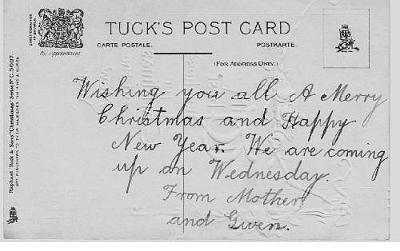 TUCK'S POST CARD
CARTE POSTALE.
POSTKARTE.
(FOR ADDRESS ONLY.)
Wishing you all A Merry
Christmas and Happy
New Year. We are coming
up on Wednesday.
From Mother
and Gwen.
Raphael Tuck & Sons "Christmas" Series